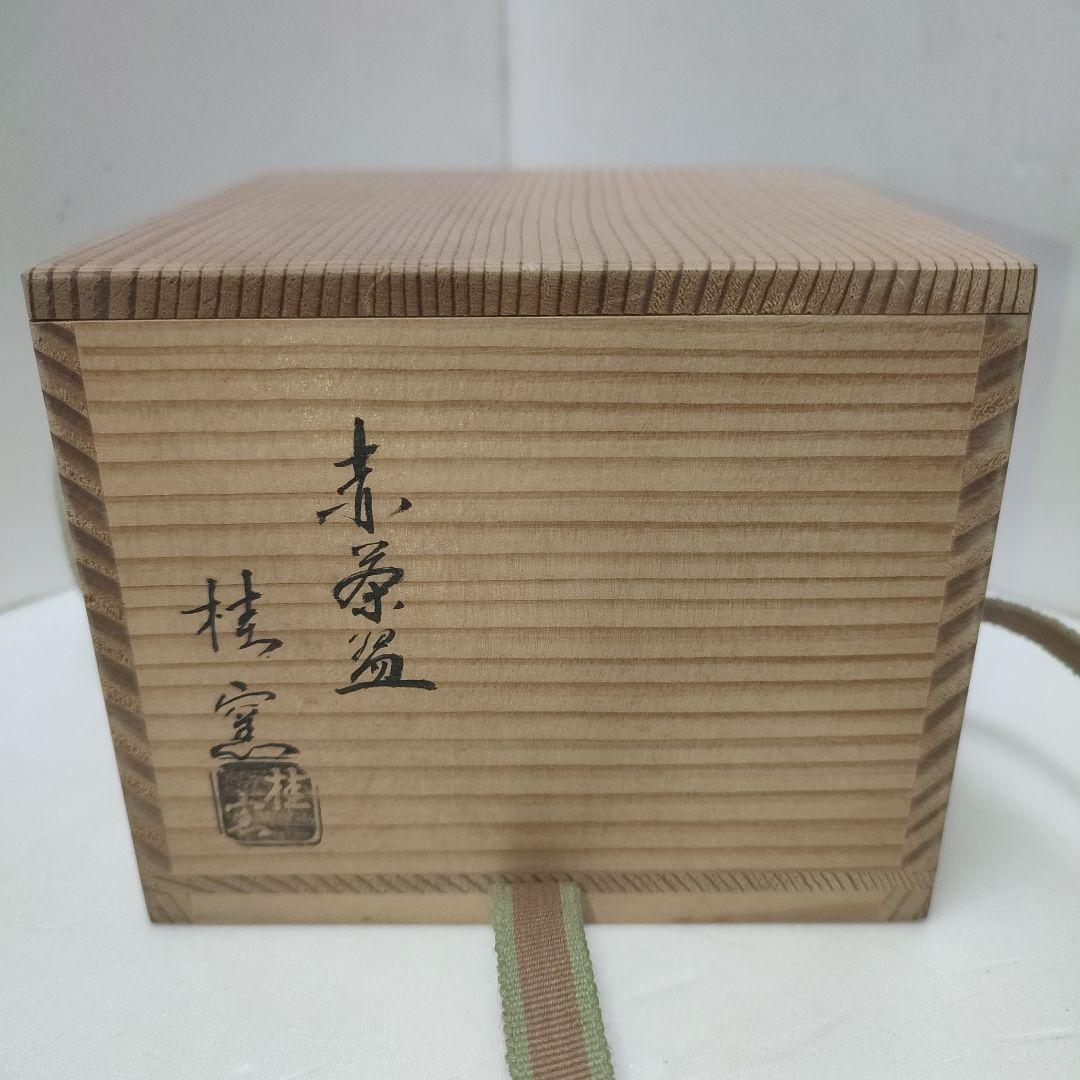 赤茶盌
桂窯
桂